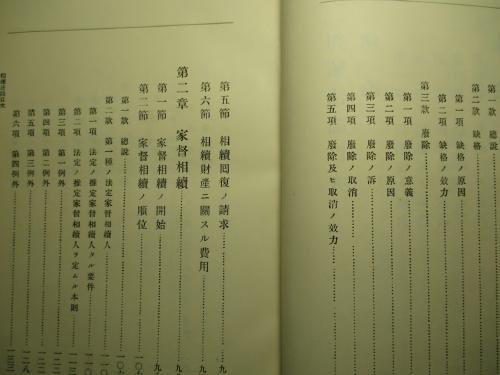 第一款 總說
第二款 缺格
第一項 缺格ノ原因
第二項 缺格ノ效力
第三款 廢除
第一項 廢除ノ意義
第二項 廢除ノ原因
第三項 廢除ノ訴
第四項 廢除ノ取消
第五項 廢除及ヒ取消ノ效力
第五節 相續囘復ノ請求
第六節 相續財產ニ關スル費用
第二章 家督相續
第一節 家督相續ノ開始
第二節 家督相續ノ順位
第一款 總說
第二款 第一種ノ法定家督相續人
第一項 法定ノ推定家督相續人タル要件
第二項 法定ノ推定家督相續人ヲ定ムル本則
第三項 第一例外
第四項 第二例外
第五項 第三例外
第六項 第四例外